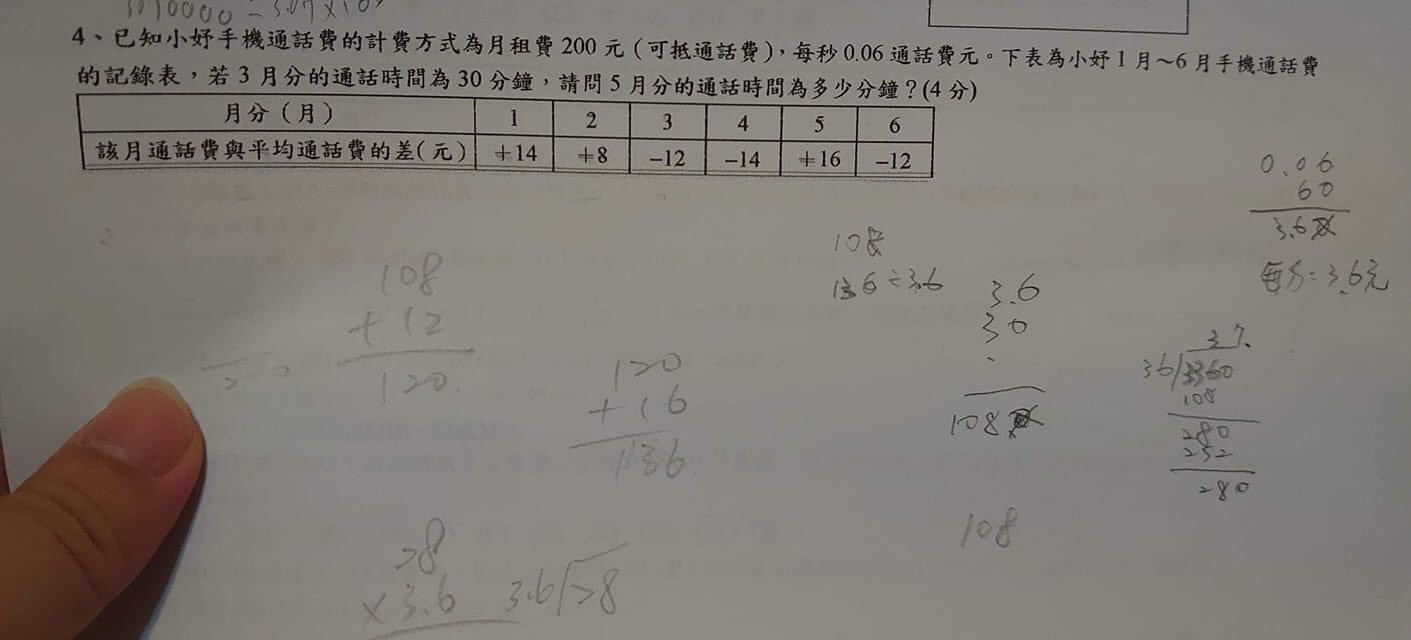 3070000 = 3.07×10
4、已知小妤手機通話費的計費方式為月租費 200 元（可抵通話費），每秒 0.06 通話費元。下表為小妤 1 月～6 月手機通話費
的記錄表，若 3 月分的通話時間為 30 分鐘，請問 5 月分的通話時間為多少分鐘？(4 分)
月分（月） 1 2 3 4 5 6
該月通話費與平均通話費的差(元) +14 +8 −12 −14 +16 −12
0.06
60
3.6
每分=3.6元
108
136÷3.6
3.6
30
108
108
+12
120
120
+16
136
37.
36
3360
108
280
252
280
108
28
×3.6
3.6
28